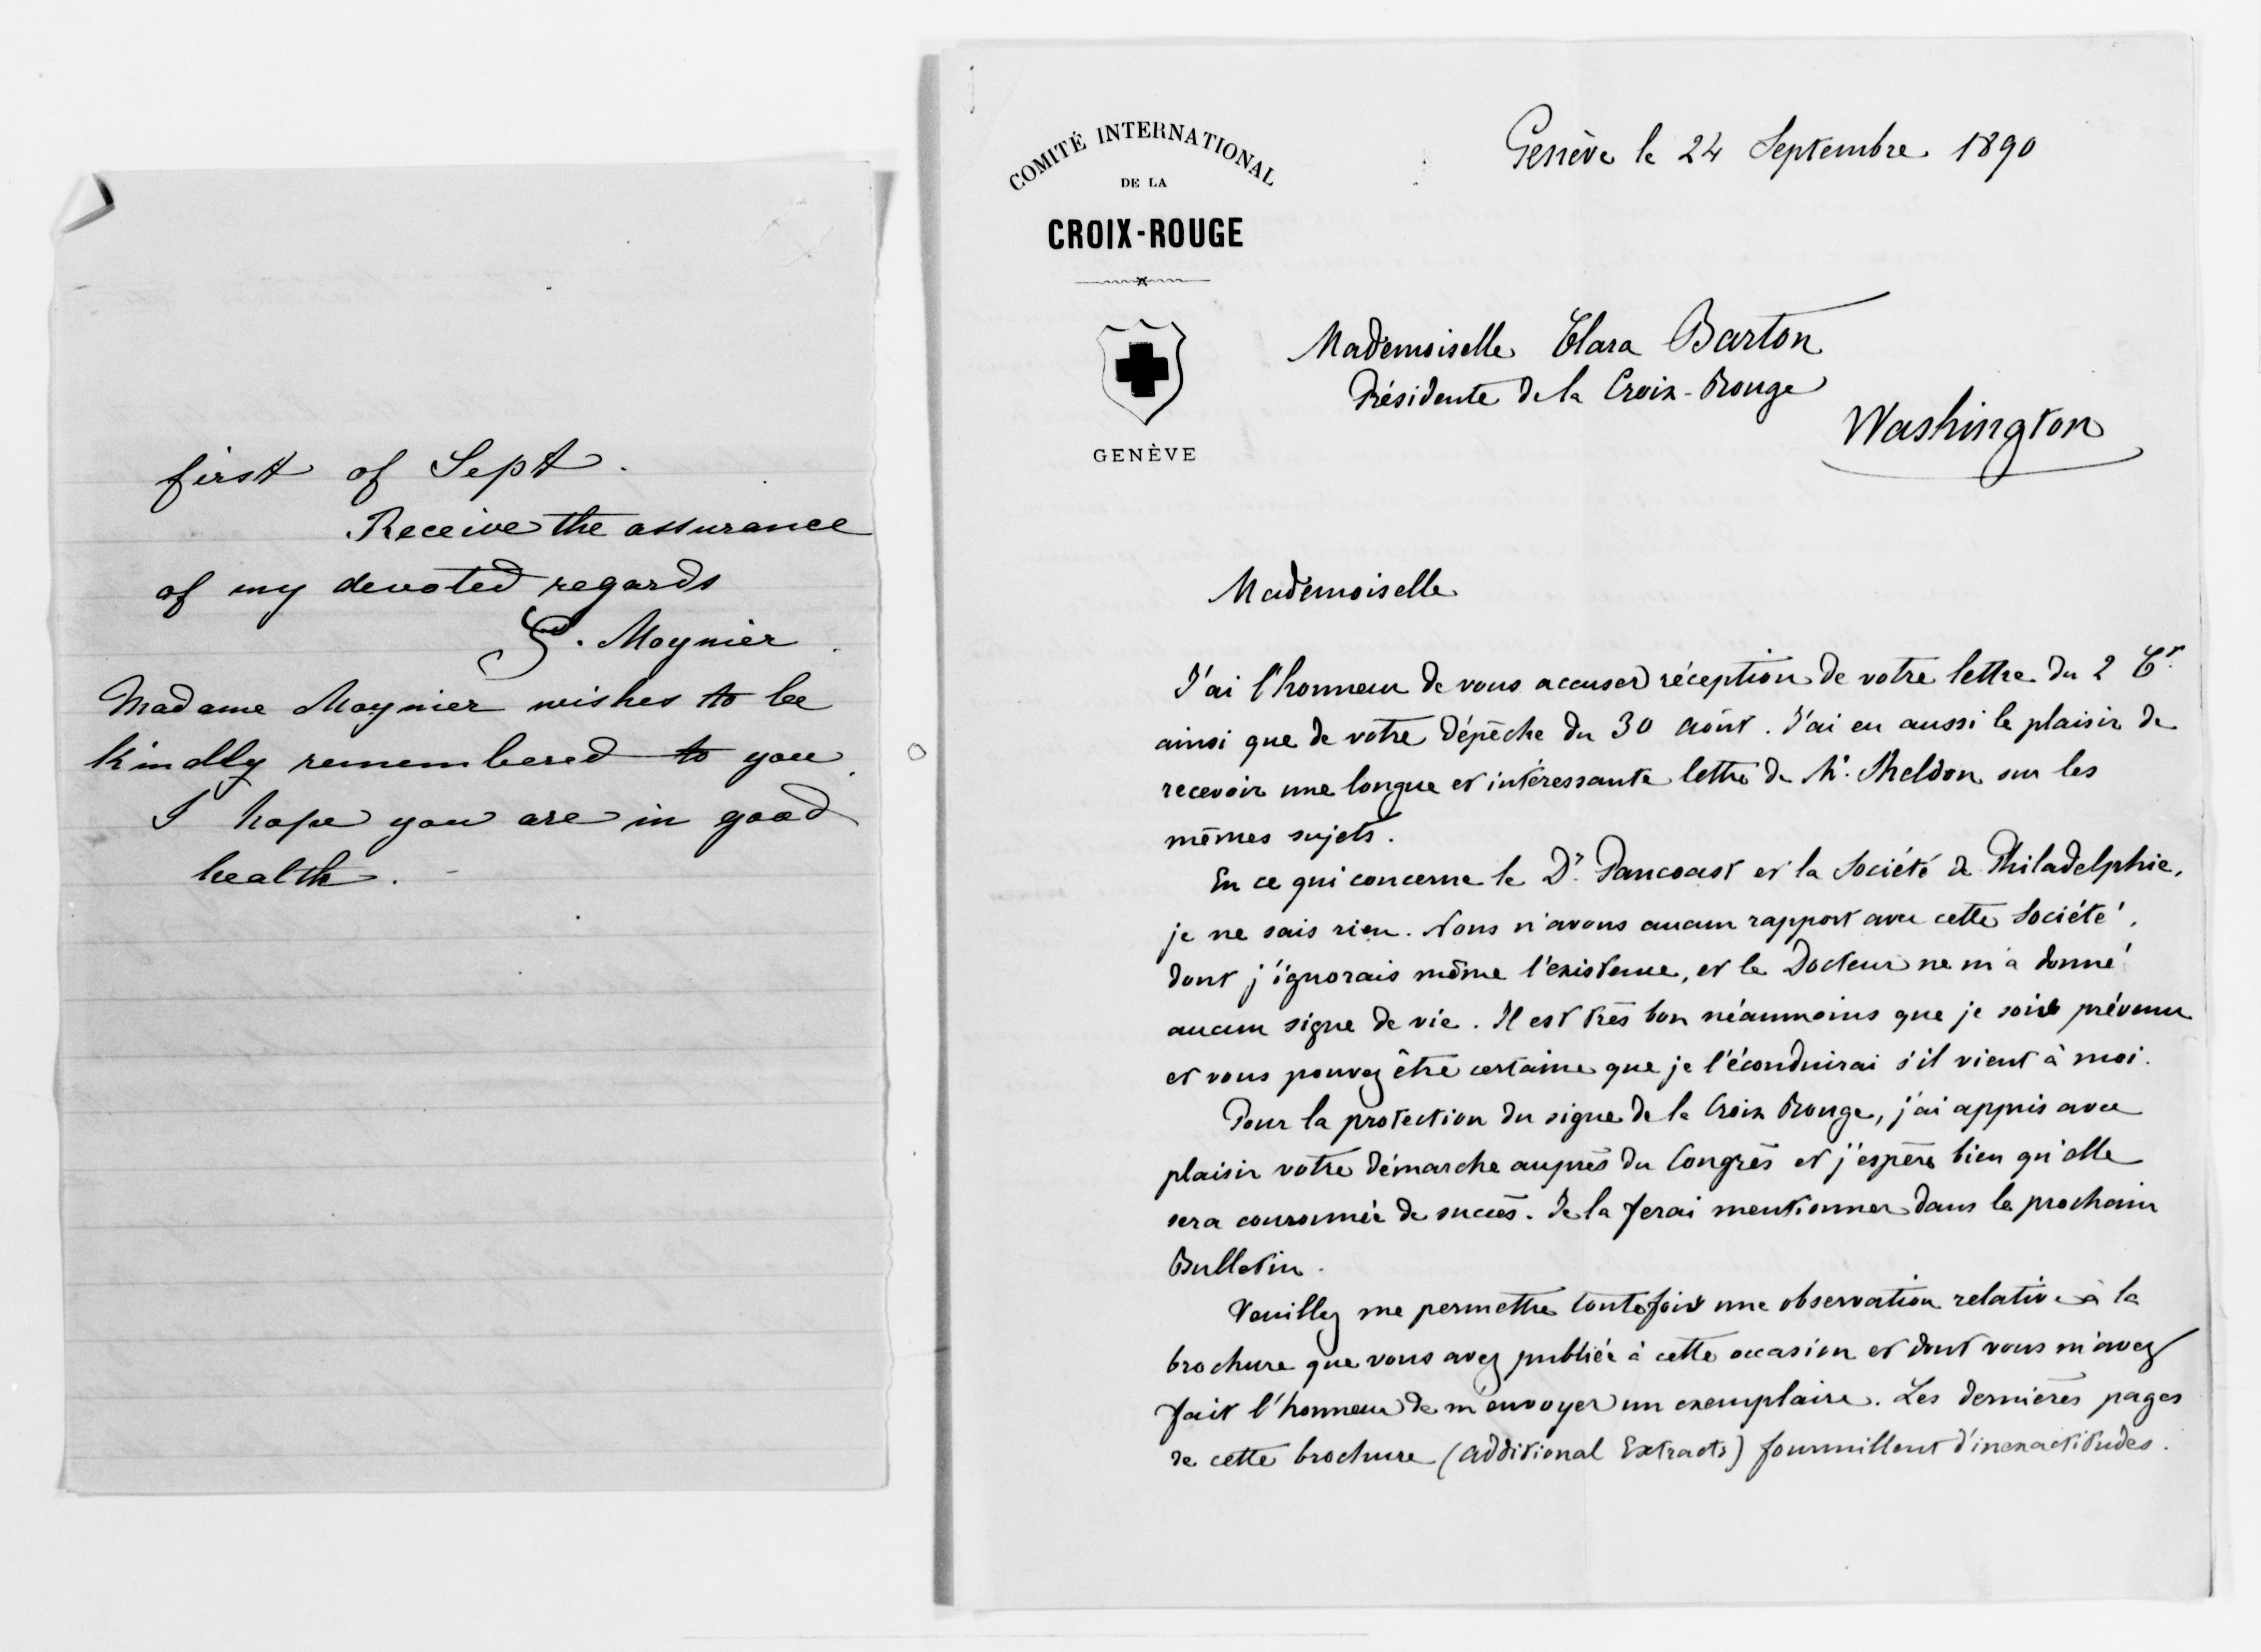 first of Sept.
Receive the assurance
of my devoted regards
G. Moynier
Madame Moynier wishes to be
kindly remembered to you.
I hope you are in good
health. -
COMITÉ INTERNATIONAL
DE LA
CROIX-ROUGE
GENÈVE
Genève le 24 Septembre 1890
Mademoiselle Clara Barton
Présidente de la Croix-Rouge
Washington
Mademoiselle
J'ai l'honneur de vous accuser réception de votre lettre du 2 Ct.
ainsi que de votre dépêche du 30 Août. J'ai eu aussi le plaisir de
recevoir une longue et intéressante lettre de Mr. Sheldon sur les
mêmes sujets.
En ce qui concerne le Dr. Pancoast et la Société de Philadelphie,
je ne sais rien. Nous n'avons aucun rapport avec cette Société,
dont j'ignorais même l'existence, et le Docteur ne m'a donné
aucun signe de vie. Il est très bon néanmoins que je sois prévenu
et vous pouvez être certaine que je l'éconduirai s'il vient à moi.
Pour la protection du signe de la Croix Rouge, j'ai appris avec
plaisir votre démarche auprès du Congrès et j'espère bien qu'elle
sera couronnée de succès. Je la ferai mentionner dans le prochain
Bulletin.
Veuillez me permettre toutefois une observation relative à la
brochure que vous avez publiée à cette occasion et dont vous m'avez
fait l'honneur de m'envoyer un exemplaire. Les dernières pages
de cette brochure (Additional Extracts) fourmillent d'inexactitudes.